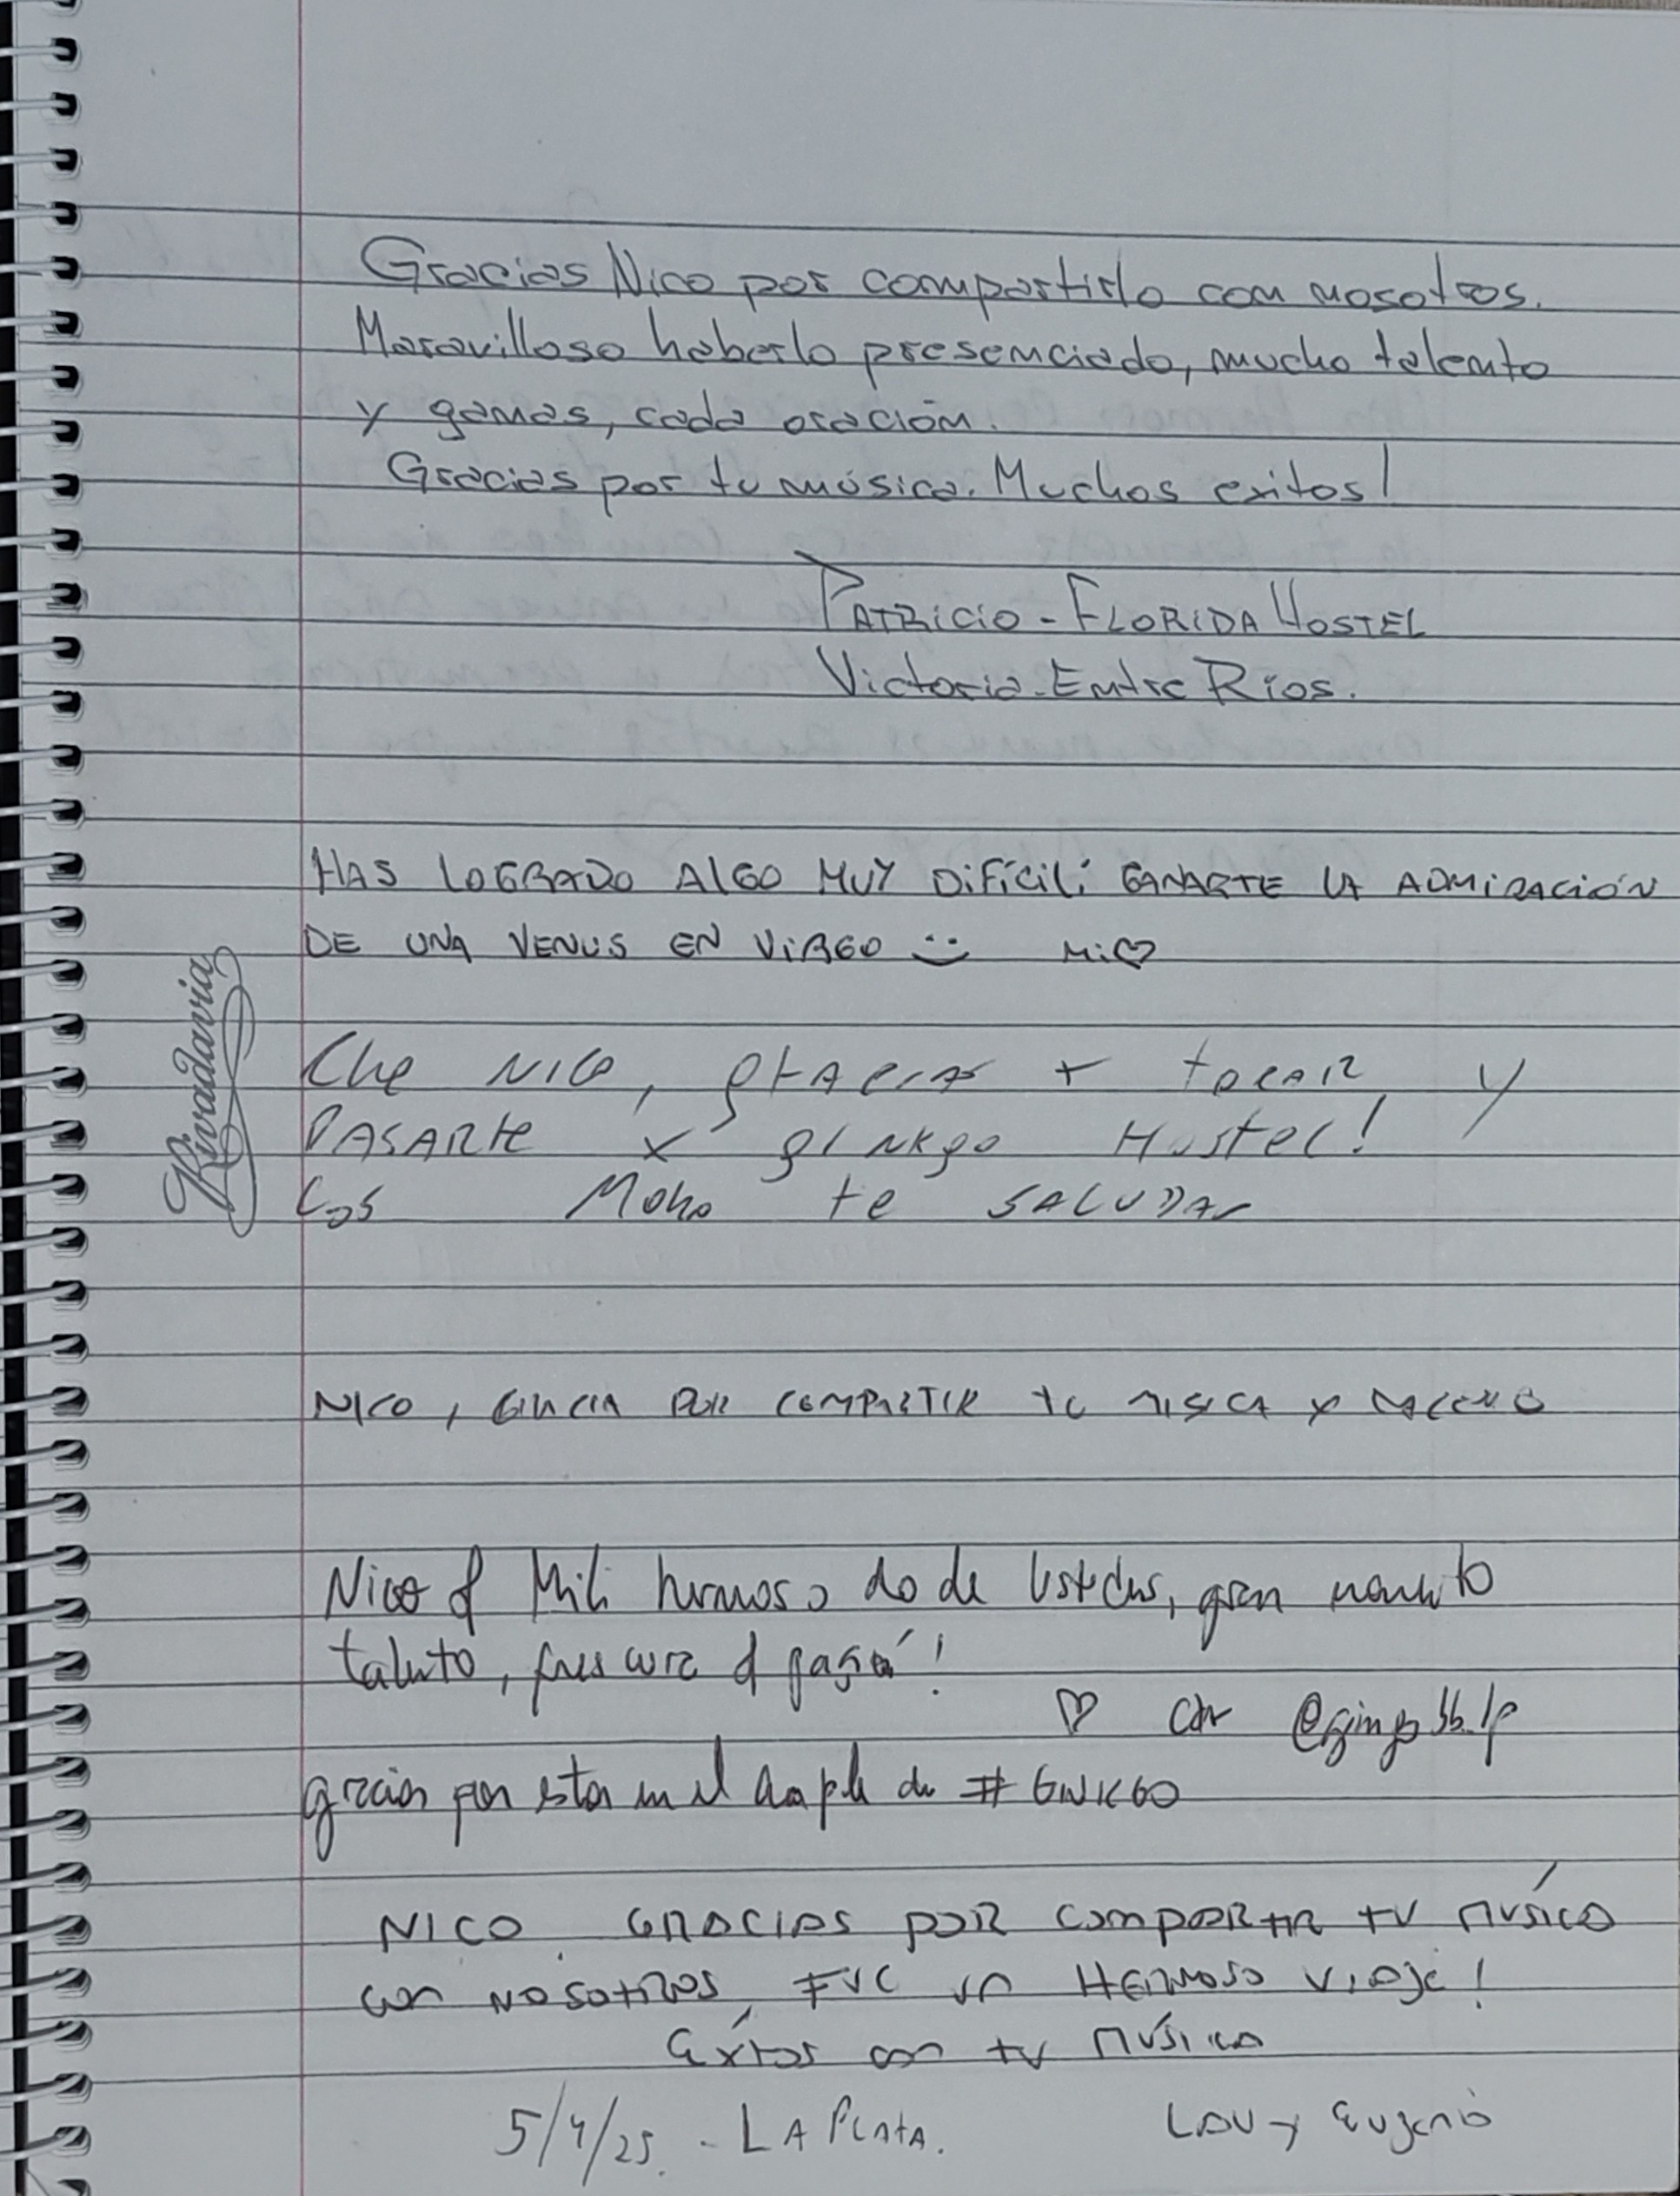 Gracias Nico por compartirlo con nosotros.
Maravilloso haberlo presenciado, mucho talento
y ganas, cada oración.
Gracias por tu música. Muchos exitos!
PATRICIO - FLORIDA HOSTEL
Victoria - Entre Ríos.
HAS LOGRADO ALGO MUY DIFÍCIL: GANARTE LA ADMIRACIÓN
DE UNA VENUS EN VIRGO :) Mi♡
Rivadavia
Che NICO, gRACIAS + tocAR y
PASARte x gINKgo Hostel!
Los Moho te SALUDAN
NICO, GRACIA POR COMPARTIR tu MUSICA y
Nico y Mili hermoso do de Ustedes, gran momento
talento, frescura y pasión!
♡
gracias por estar en el de # GINKGO
NICO. GRACIAS POR COMPARTIR TU MÚSICA
con NOSOTROS, FUE UN HERMOSO VIAJE!
Éxitos con tu MÚSICA
5/4/25. - LA PLATA. LAU y Eugenio